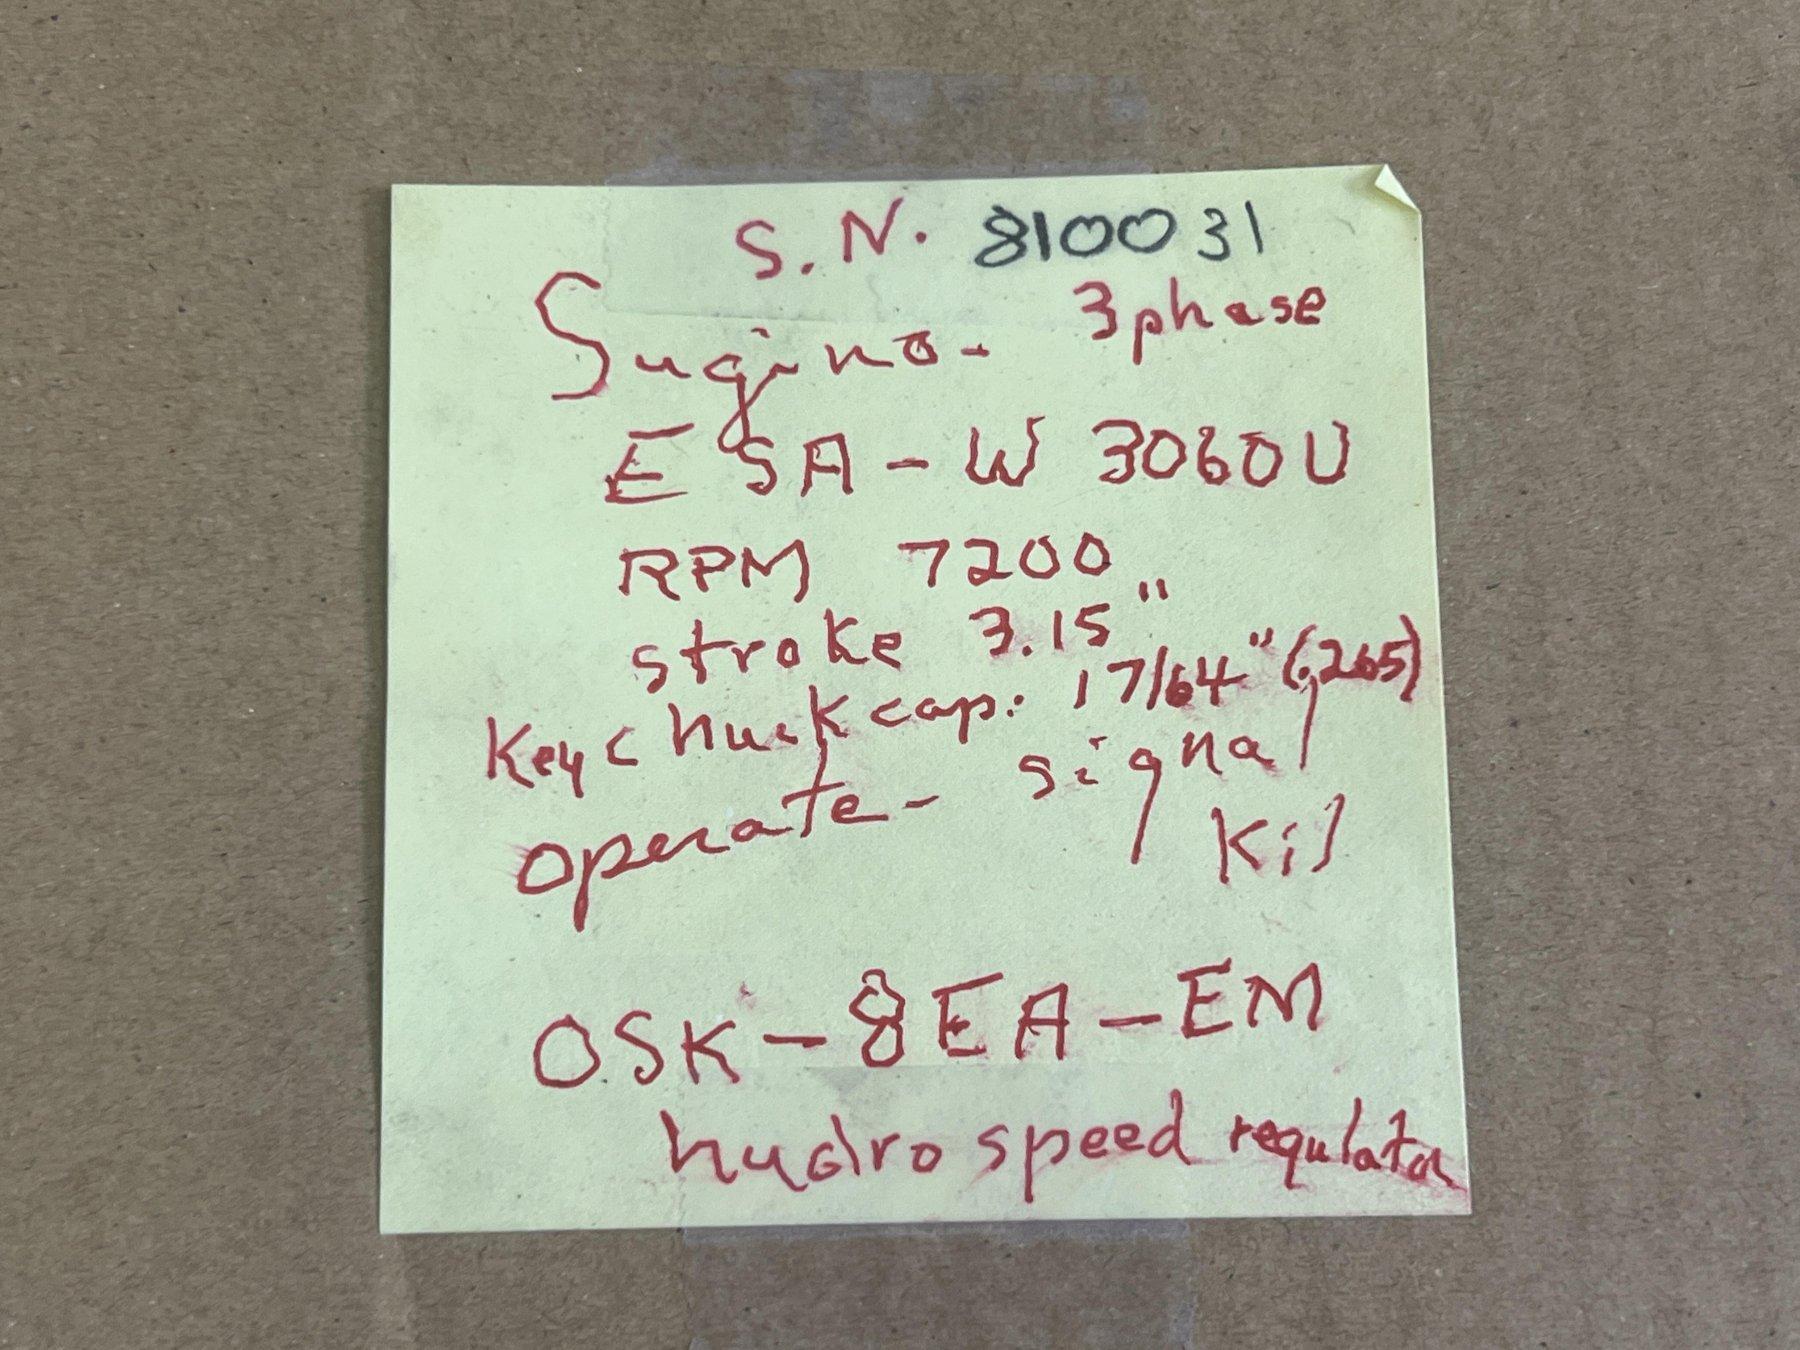 S.N. 810031
Sugino - 3 phase
ESA-W 3060U
RPM 7200
stroke 3.15"
Key chuck cap: 17/64" (.265)
operate - signal
Kil
OSK-8EA-EM
hydro speed regulator